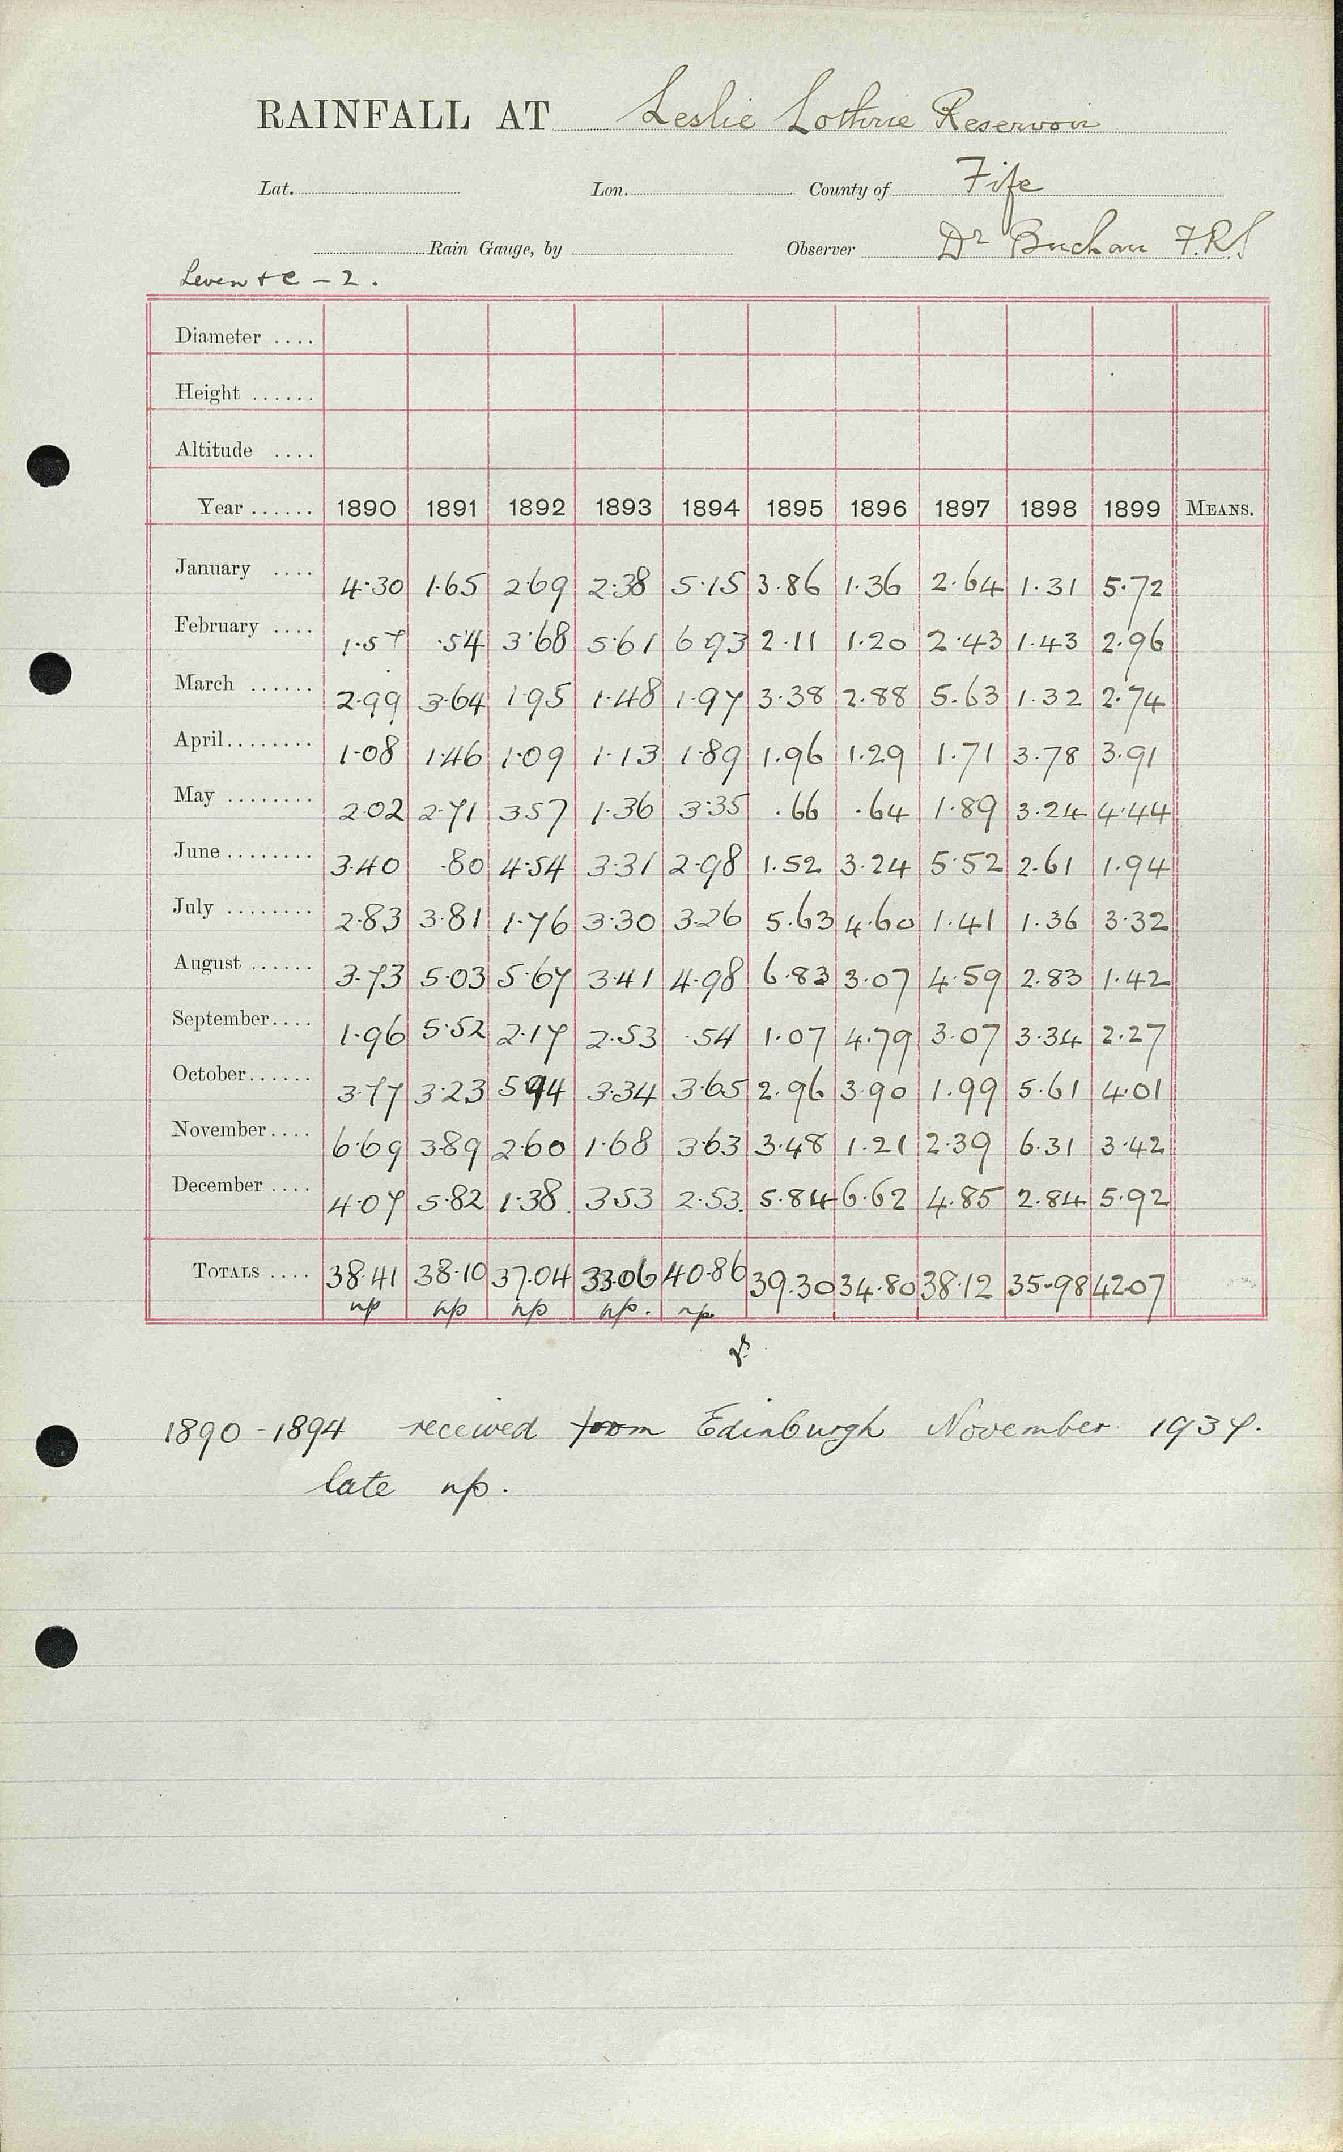 RAINFALL AT Leslie Lothrie Reservoir
Lat. Lon. County of Fife
Rain Gauge, by Observer Dr Buchan F.R.S
Leven + C - 2.
Diameter ....
Height ......
Altitude ....
Year ...... 1890 1891 1892 1893 1894 1895 1896 1897 1898 1899 MEANS.
January .... 4·30 1·65 2·69 2·38 5·15 3·86 1·36 2·64 1·31 5·72
February .... 1·57 ·54 3·68 5·61 6·93 2·11 1·20 2·43 1·43 2·96
March ...... 2·99 3·64 1·95 1·48 1·97 3·38 2·88 5·63 1·32 2·74
April........ 1·08 1·46 1·09 1·13 1·89 1·96 1·29 1·71 3·78 3·91
May ........ 2·02 2·71 3·57 1·36 3·35 ·66 ·64 1·89 3·24 4·44
June ........ 3·40 ·80 4·54 3·31 2·98 1·52 3·24 5·52 2·61 1·94
July ........ 2·83 3·81 1·76 3·30 3·26 5·63 4·60 1·41 1·36 3·32
August ...... 3·73 5·03 5·67 3·41 4·98 6·83 3·07 4·59 2·83 1·42
September.... 1·96 5·52 2·17 2·53 ·54 1·07 4·79 3·07 3·34 2·27
October...... 3·77 3·23 5·94 3·34 3·65 2·96 3·90 1·99 5·61 4·01
November.... 6·69 3·89 2·60 1·68 3·63 3·48 1·21 2·39 6·31 3·42
December .... 4·07 5·82 1·38 3·53 2·53 5·84 6·62 4·85 2·84 5·92
TOTALS .... 38·41 38·10 37·04 33·06 40·86 39·30 34·80 38·12 35·98 42·07
np np np np. np
1890 - 1894 received from Edinburgh November 1937.
late np.